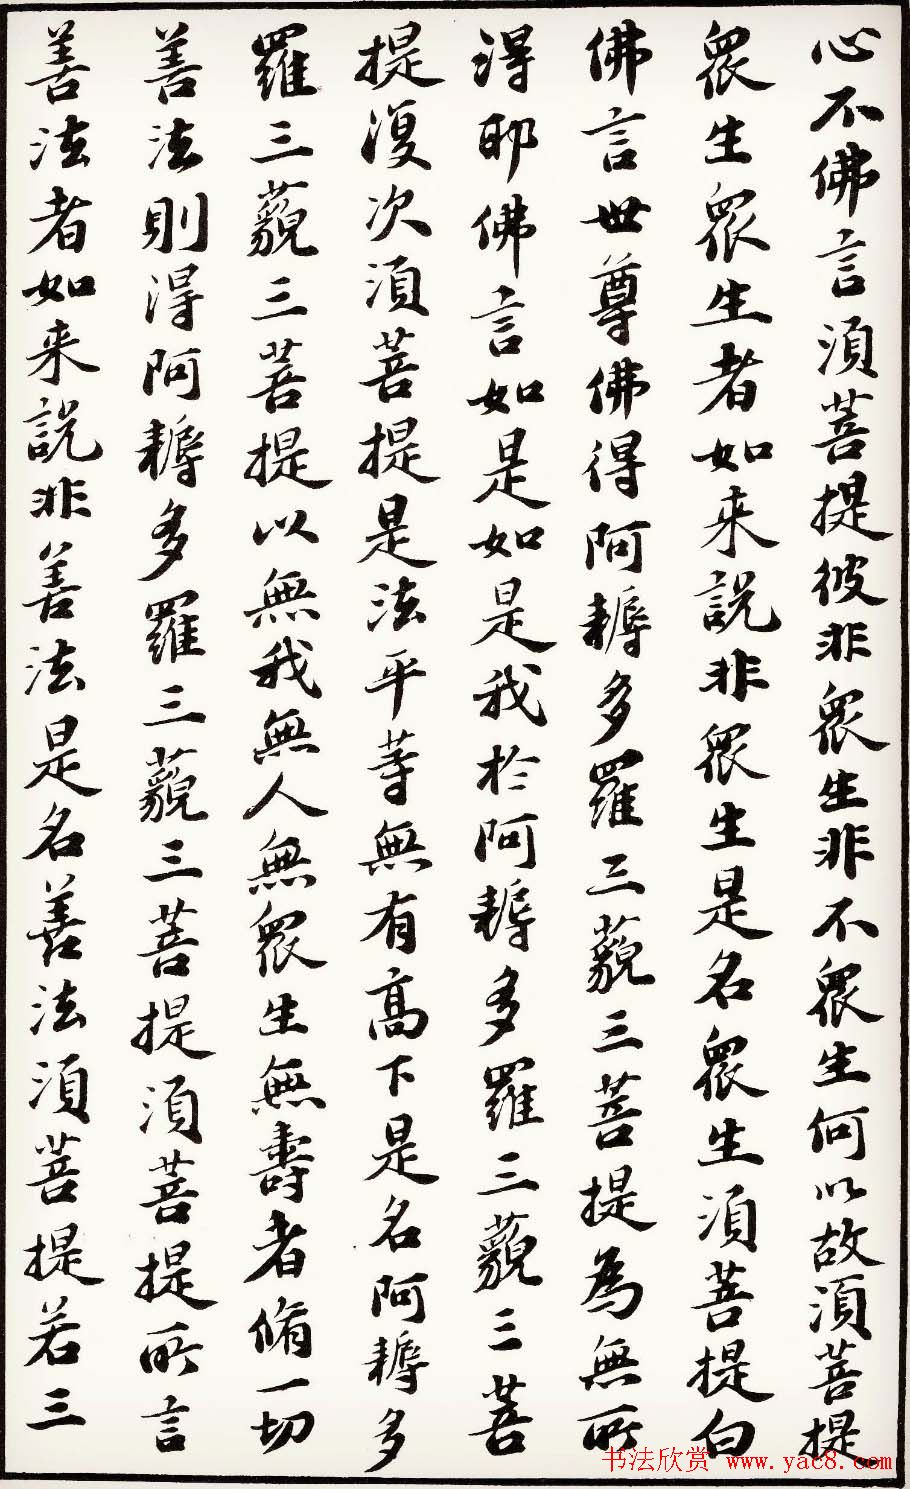 心不佛言須菩提彼非眾生非不眾生何以故須菩提
眾生眾生者如来說非眾生是名眾生須菩提白
佛言世尊佛得阿耨多羅三藐三菩提為無所
得耶佛言如是如是我於阿耨多羅三藐三菩
提復次須菩提是法平等無有高下是名阿耨多
羅三藐三菩提以無我無人無眾生無壽者脩一切
善法則得阿耨多羅三藐三菩提須菩提所言
善法者如来說非善法是名善法須菩提若三
书法欣赏 www.yac8.com